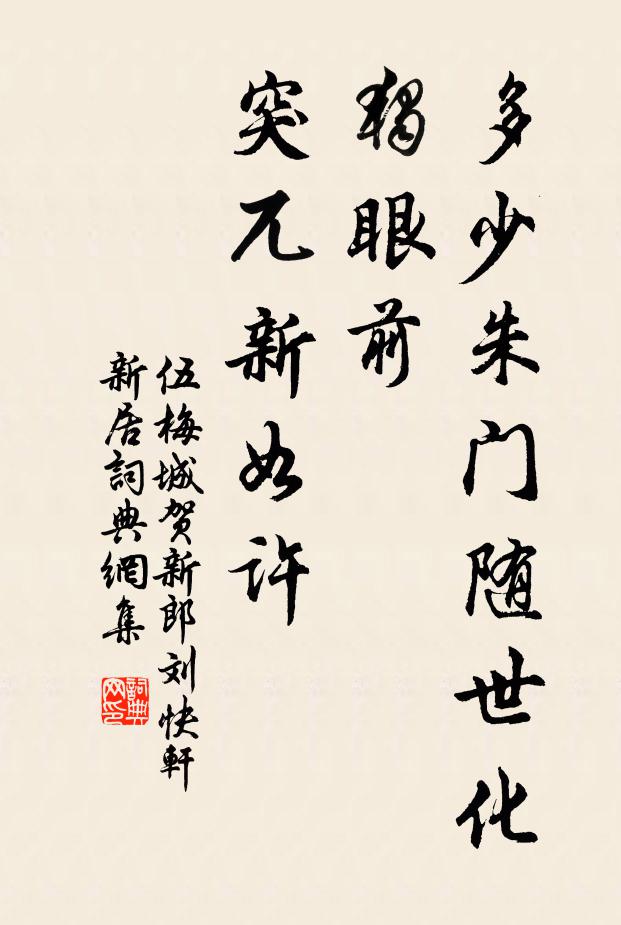 多少朱门随世化
独眼前
突兀新如许
伍梅城贺新郎刘快軒
新居詞典網集
詞典网印